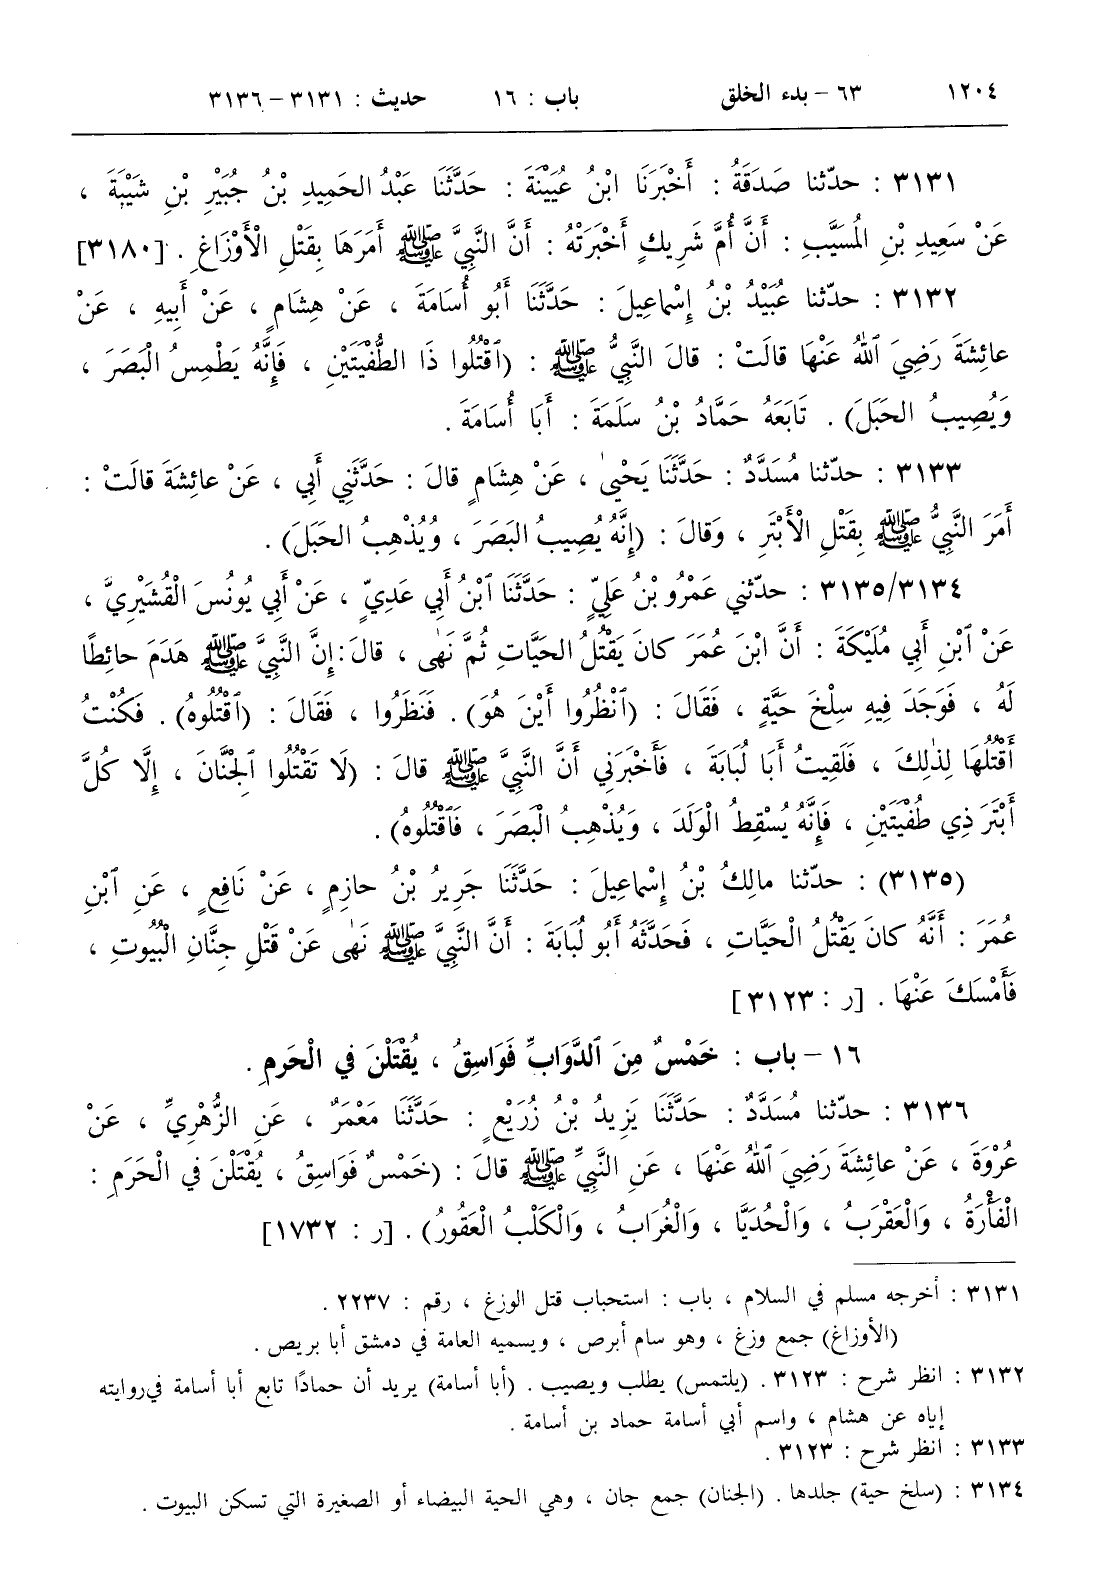 ١٢٠٤ ٦٣ – بدء الخلق باب : ١٦ حديث : ٣١٣١ – ٣١٣٦
٣١٣١ : حدّثنا صَدَقَةُ : أَخْبَرَنَا ابْنُ عُيَيْنَةَ : حَدَّثَنَا عَبْدُ الحَمِيدِ بْنُ جُبَيْرِ بْنِ شَيْبَةَ ،
عَنْ سَعِيدِ بْنِ المُسَيَّبِ : أَنَّ أُمَّ شَرِيكٍ أَخْبَرَتْهُ : أَنَّ النَّبِيَّ ﷺ أَمَرَهَا بِقَتْلِ الْأَوْزَاغِ . [٣١٨٠]
٣١٣٢ : حدّثنا عُبَيْدُ بْنُ إِسْماعِيلَ : حَدَّثَنَا أَبُو أُسَامَةَ ، عَنْ هِشَامٍ ، عَنْ أَبِيهِ ، عَنْ
عائِشَةَ رَضِيَ ٱللهُ عَنْهَا قالَتْ : قالَ النَّبِيُّ ﷺ : (ٱقْتُلُوا ذَا الطُّفْيَتَيْنِ ، فَإِنَّهُ يَطْمِسُ الْبَصَرَ ،
وَيُصِيبُ الحَبَلَ) . تَابَعَهُ حَمَّادُ بْنُ سَلَمَةَ : أَبَا أُسَامَةَ .
٣١٣٣ : حدّثنا مُسَدَّدٌ : حَدَّثَنَا يَحْيىٰ ، عَنْ هِشَامٍ قالَ : حَدَّثَنِي أَبِي ، عَنْ عائِشَةَ قالَتْ :
أَمَرَ النَّبِيُّ ﷺ بِقَتْلِ الْأَبْتَرِ ، وَقالَ : (إِنَّهُ يُصِيبُ البَصَرَ ، وَيُذْهِبُ الحَبَلَ) .
٣١٣٥/٣١٣٤ : حدّثني عَمْرُو بْنُ عَلِيٍّ : حَدَّثَنَا ٱبْنُ أَبِي عَدِيٍّ ، عَنْ أَبِي يُونُسَ الْقُشَيْرِيِّ ،
عَنْ ٱبْنِ أَبِي مُلَيْكَةَ : أَنَّ ابْنَ عُمَرَ كانَ يَقْتُلُ الحَيَّاتِ ثُمَّ نَهٰى ، قالَ : إِنَّ النَّبِيَّ ﷺ هَدَمَ حائِطًا
لَهُ ، فَوَجَدَ فِيهِ سِلْخَ حَيَّةٍ ، فَقَالَ : (ٱنْظُرُوا أَيْنَ هُوَ) . فَنَظَرُوا ، فَقَالَ : (ٱقْتُلُوهُ) . فَكُنْتُ
أَقْتُلُهَا لِذٰلِكَ ، فَلَقِيتُ أَبَا لُبَابَةَ ، فَأَخْبَرَنِي أَنَّ النَّبِيَّ ﷺ قالَ : (لَا تَقْتُلُوا ٱلْجِنَّانَ ، إِلَّا كُلَّ
أَبْتَرَ ذِي طُفْيَتَيْنِ ، فَإِنَّهُ يُسْقِطُ الْوَلَدَ ، وَيُذْهِبُ الْبَصَرَ ، فَٱقْتُلُوهُ) .
(٣١٣٥) : حدّثنا مالِكُ بْنُ إِسْماعِيلَ : حَدَّثَنَا جَرِيرُ بْنُ حازِمٍ ، عَنْ نَافِعٍ ، عَنِ ٱبْنِ
عُمَرَ : أَنَّهُ كانَ يَقْتُلُ الْحَيَّاتِ ، فَحَدَّثَهُ أَبُو لُبَابَةَ : أَنَّ النَّبِيَّ ﷺ نَهٰى عَنْ قَتْلِ جِنَّانِ الْبُيُوتِ ،
فَأَمْسَكَ عَنْهَا . [ر : ٣١٢٣]
١٦ – باب : خَمْسٌ مِنَ ٱلدَّوَابِّ فَوَاسِقُ ، يُقْتَلْنَ فِي الْحَرَمِ .
٣١٣٦ : حدّثنا مُسَدَّدٌ : حَدَّثَنَا يَزِيدُ بْنُ زُرَيْعٍ : حَدَّثَنَا مَعْمَرٌ ، عَنِ الزُّهْرِيِّ ، عَنْ
عُرْوَةَ ، عَنْ عائِشَةَ رَضِيَ ٱللهُ عَنْهَا ، عَنِ النَّبِيِّ ﷺ قالَ : (خَمْسٌ فَوَاسِقُ ، يُقْتَلْنَ فِي الْحَرَمِ :
الْفَأْرَةُ ، وَالْعَقْرَبُ ، وَالْحُدَيَّا ، وَالْغُرَابُ ، وَالْكَلْبُ الْعَقُورُ) . [ر : ١٧٣٢]
٣١٣١ : أخرجه مسلم في السلام ، باب : استحباب قتل الوزغ ، رقم : ٢٢٣٧ .
(الأوزاغ) جمع وزغ ، وهو سام أبرص ، ويسميه العامة في دمشق أبا بريص .
٣١٣٢ : انظر شرح : ٣١٢٣ . (يلتمس) يطلب ويصيب . (أبا أسامة) يريد أن حمادًا تابع أبا أسامة في روايته
إياه عن هشام ، واسم أبي أسامة حماد بن أسامة .
٣١٣٣ : انظر شرح : ٣١٢٣ .
٣١٣٤ : (سلخ حية) جلدها . (الجنان) جمع جان ، وهي الحية البيضاء أو الصغيرة التي تسكن البيوت .